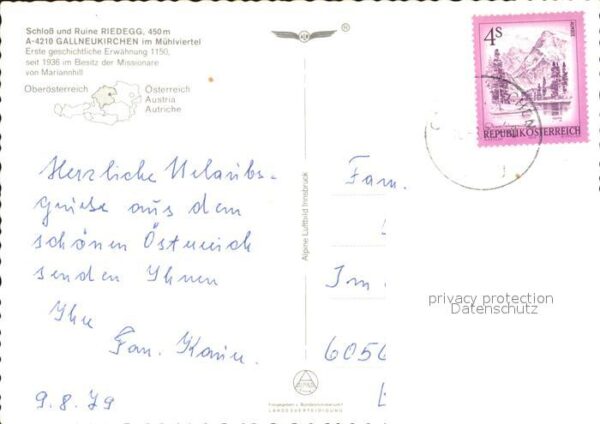 Schloß und Ruine RIEDEGG, 450 m
A-4210 GALLNEUKIRCHEN im Mühlviertel
Erste geschichtliche Erwähnung 1150,
seit 1936 im Besitz der Missionare
von Mariannhill
Oberösterreich
Österreich
Austria
Autriche
4S
REPUBLIK ÖSTERREICH
Herzliche Urlaubs-
grüße aus dem
schönen Österreich
senden Ihnen
Ihre
Fam.
9.8.79
Alpine Luftbild Innsbruck
Fam.
Im
6056
privacy protection
Datenschutz
LANDESVERTEIDIGUNG